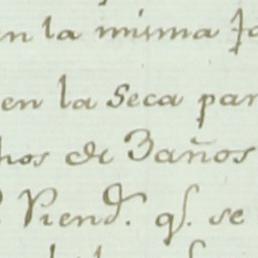 en la misma
en la Seca par
hos de Baños
Viend.º q.e se